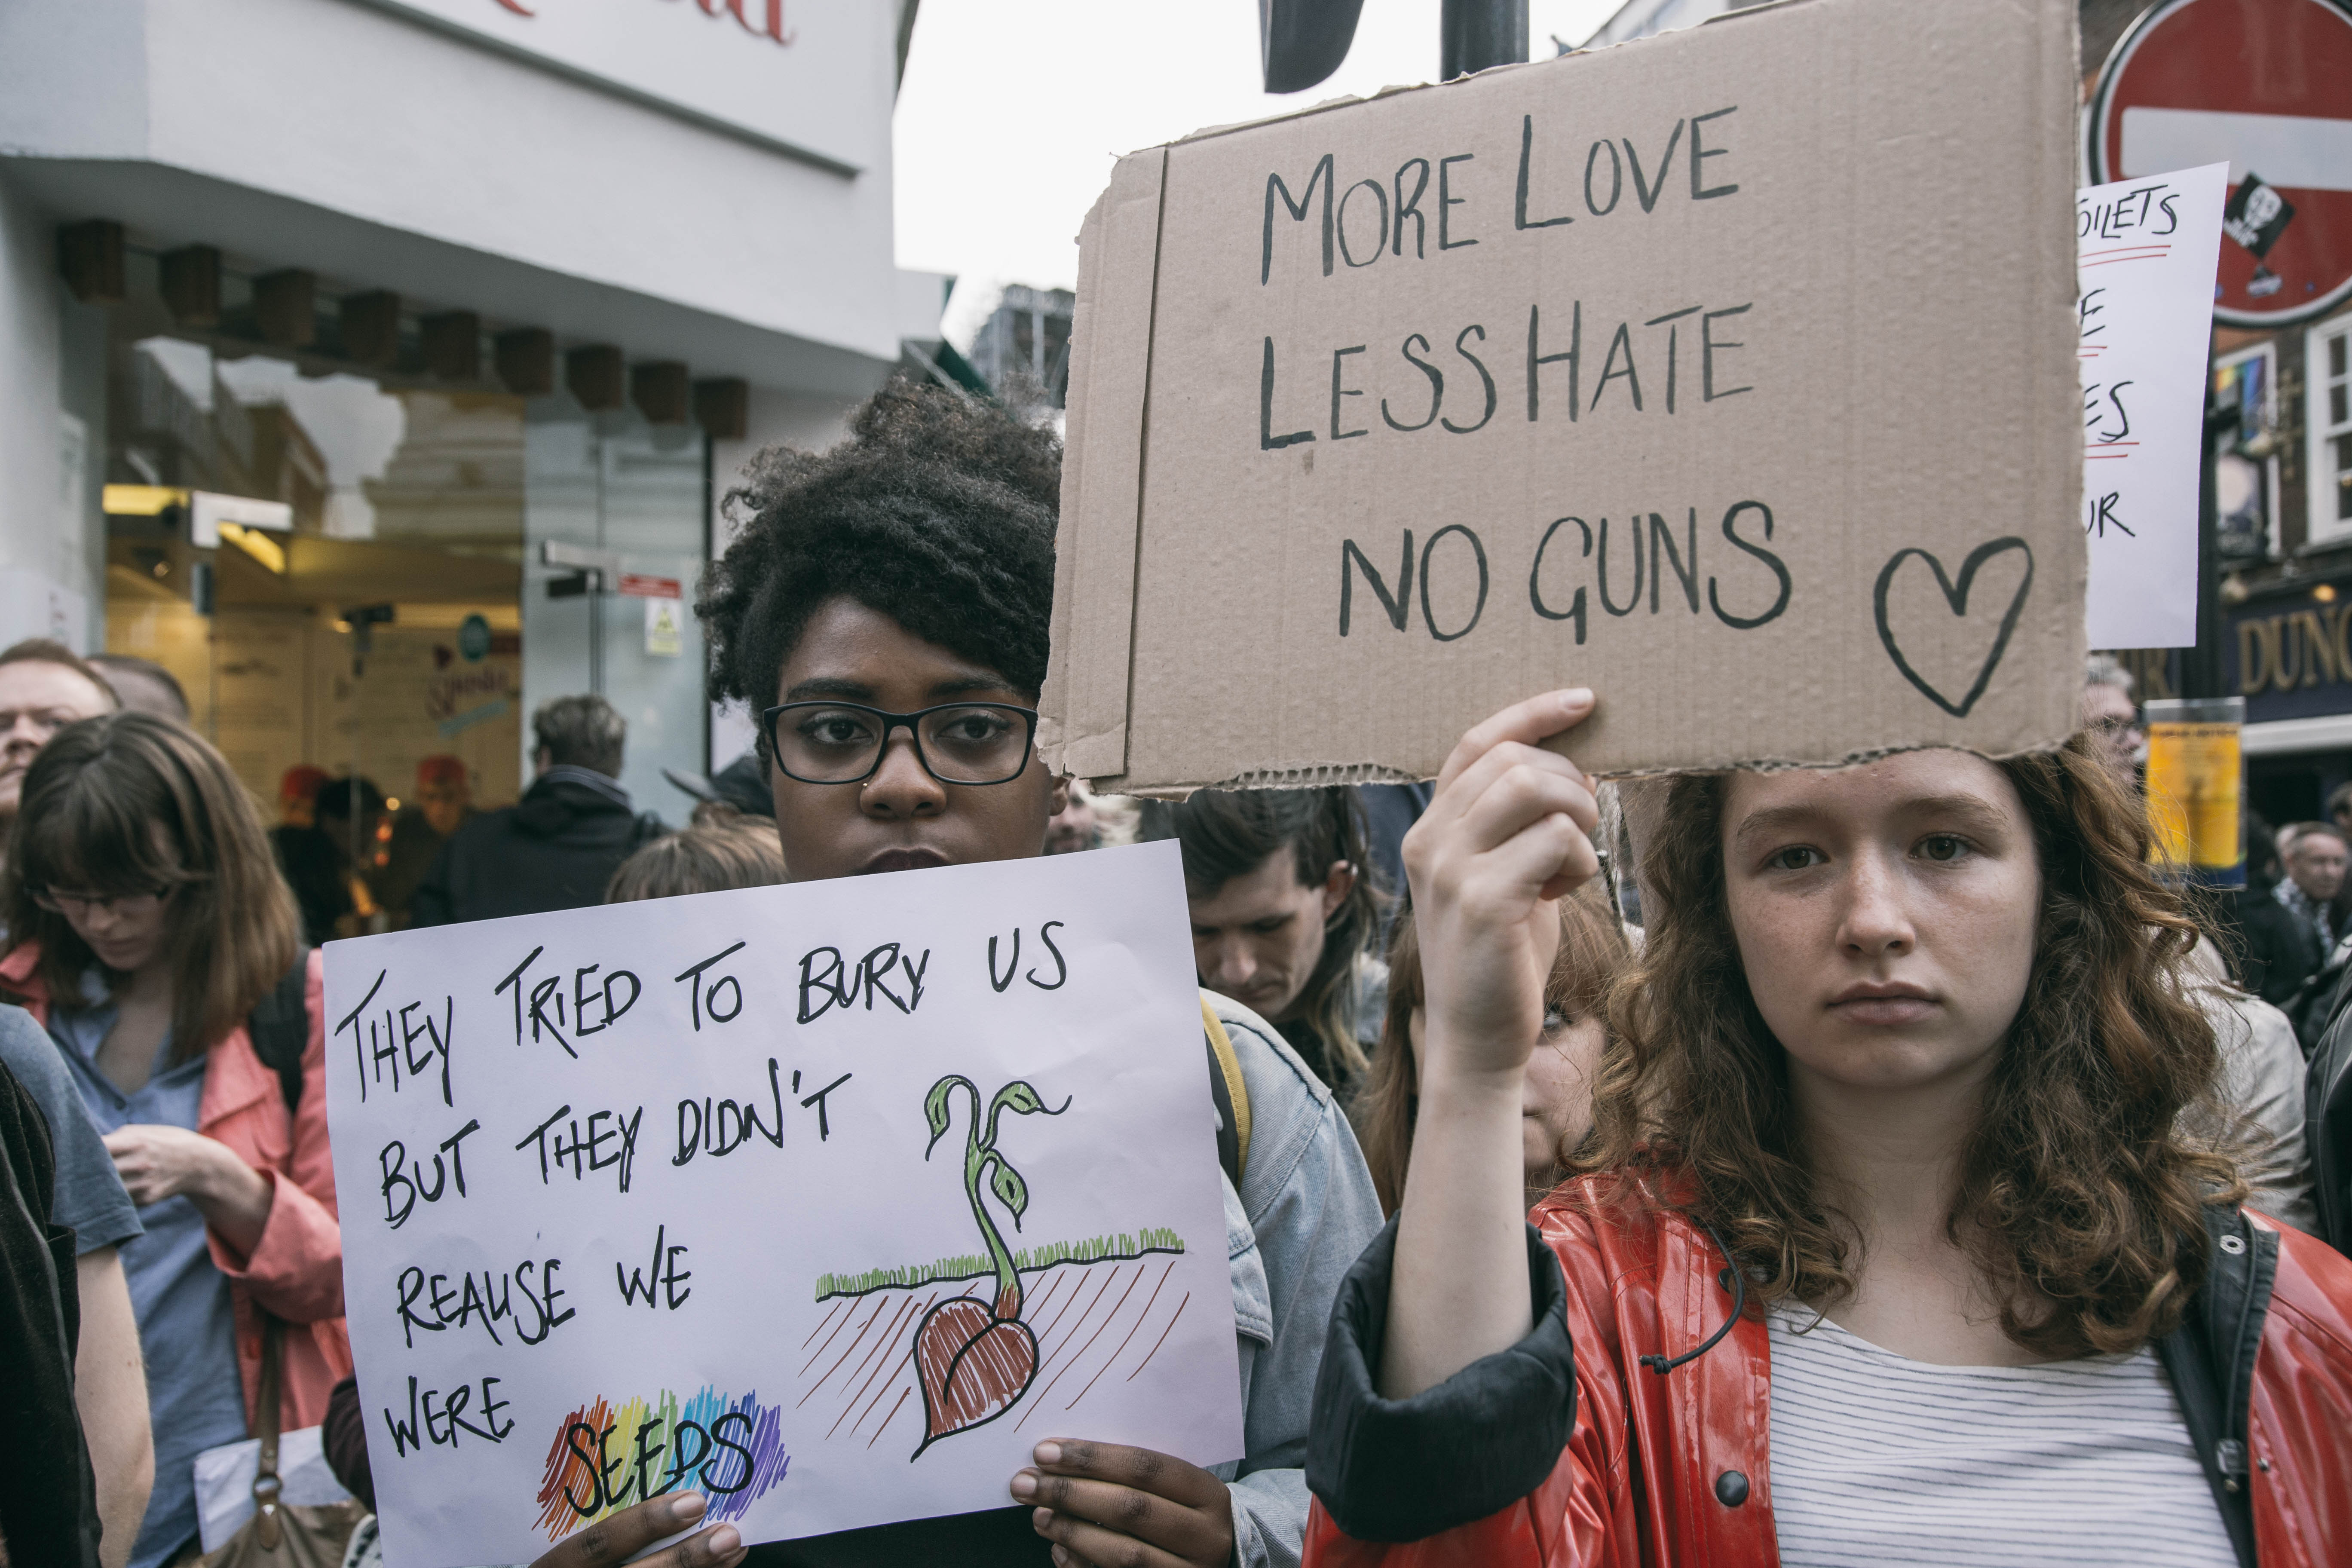 MORE LOVE
LESS HATE
NO GUNS
THEY TRIED TO BURY US
BUT THEY DIDN'T
REALISE WE
WERE SEEDS
OILETS
E
ES
UR
DUNC